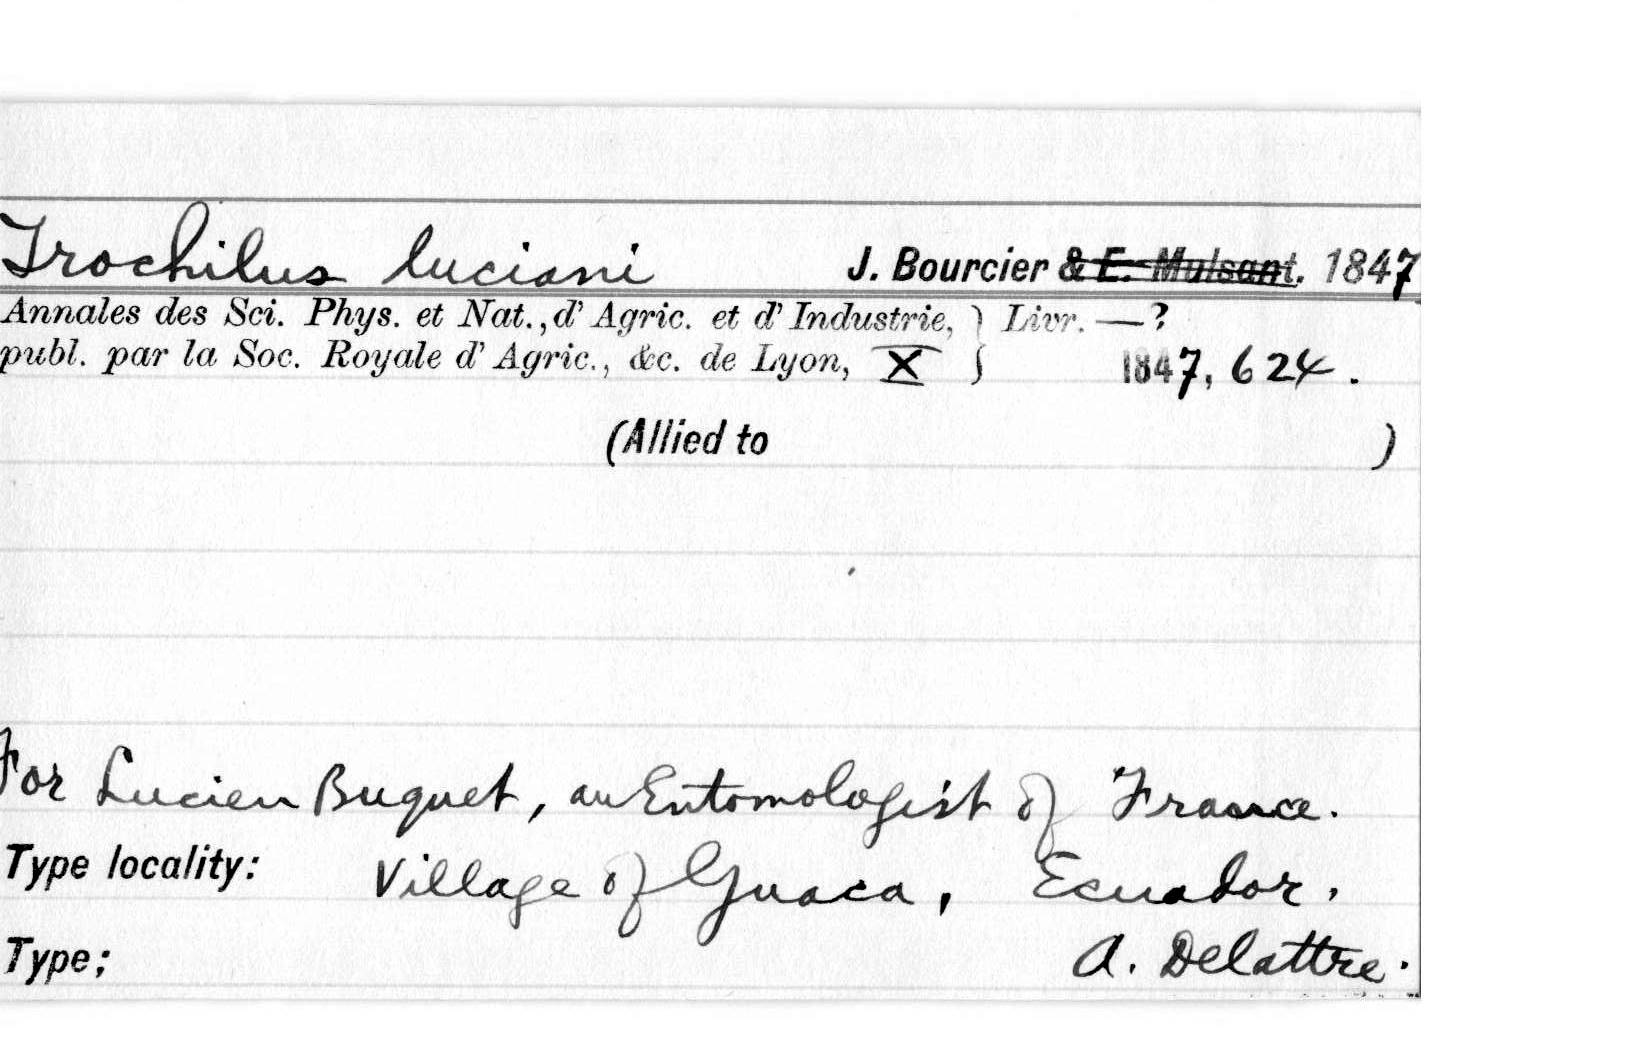 Trochilus luciani J. Bourcier & E. Mulsant. 1847
Annales des Sci. Phys. et Nat., d' Agric. et d' Industrie, } Livr. —?
publ. par la Soc. Royale d' Agric., &c. de Lyon, X } 1847, 624.
(Allied to )
For Lucien Buquet, an Entomologist of France.
Type locality: Village of Guaca, Ecuador.
Type; A. Delattre.